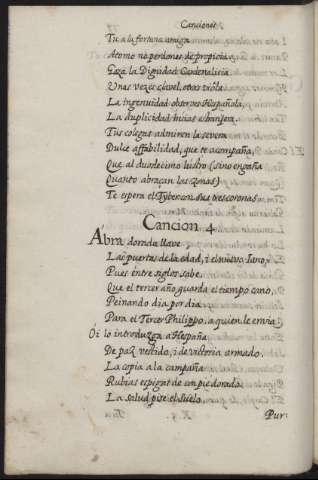 Canciones
Tu a la fortuna amiga
Atomo no perdones de propicia
Goza la Dignidad Cardenalicia
Unas vezes clavel, otras viola
La ingenuidad observes Hespañola,
La duplicidad huias estranjera.
Tus colegas admiren la severa
Dulce affabilidad, que te acompaña
Que al duodecimo lustro (si no engaña
Quanto abraçan las zonas)
Te espera el Tyber con sus tres coronas
Cancion 4
Abra dorada llave
Las puertas de la edad, i el nuevo Iano,
Pues entre siglos sabe
Que el tercer año guarda el tiempo cano,
Peinando dia por dia
Para el Tercer Philippo, a quien le envia:
Oi lo introduzga a Hespaña
De paz vestido, i de victoria armado.
La copia a la campaña
Rubias espigas dé con pie dorado.
La salud pise el suelo
Pur: